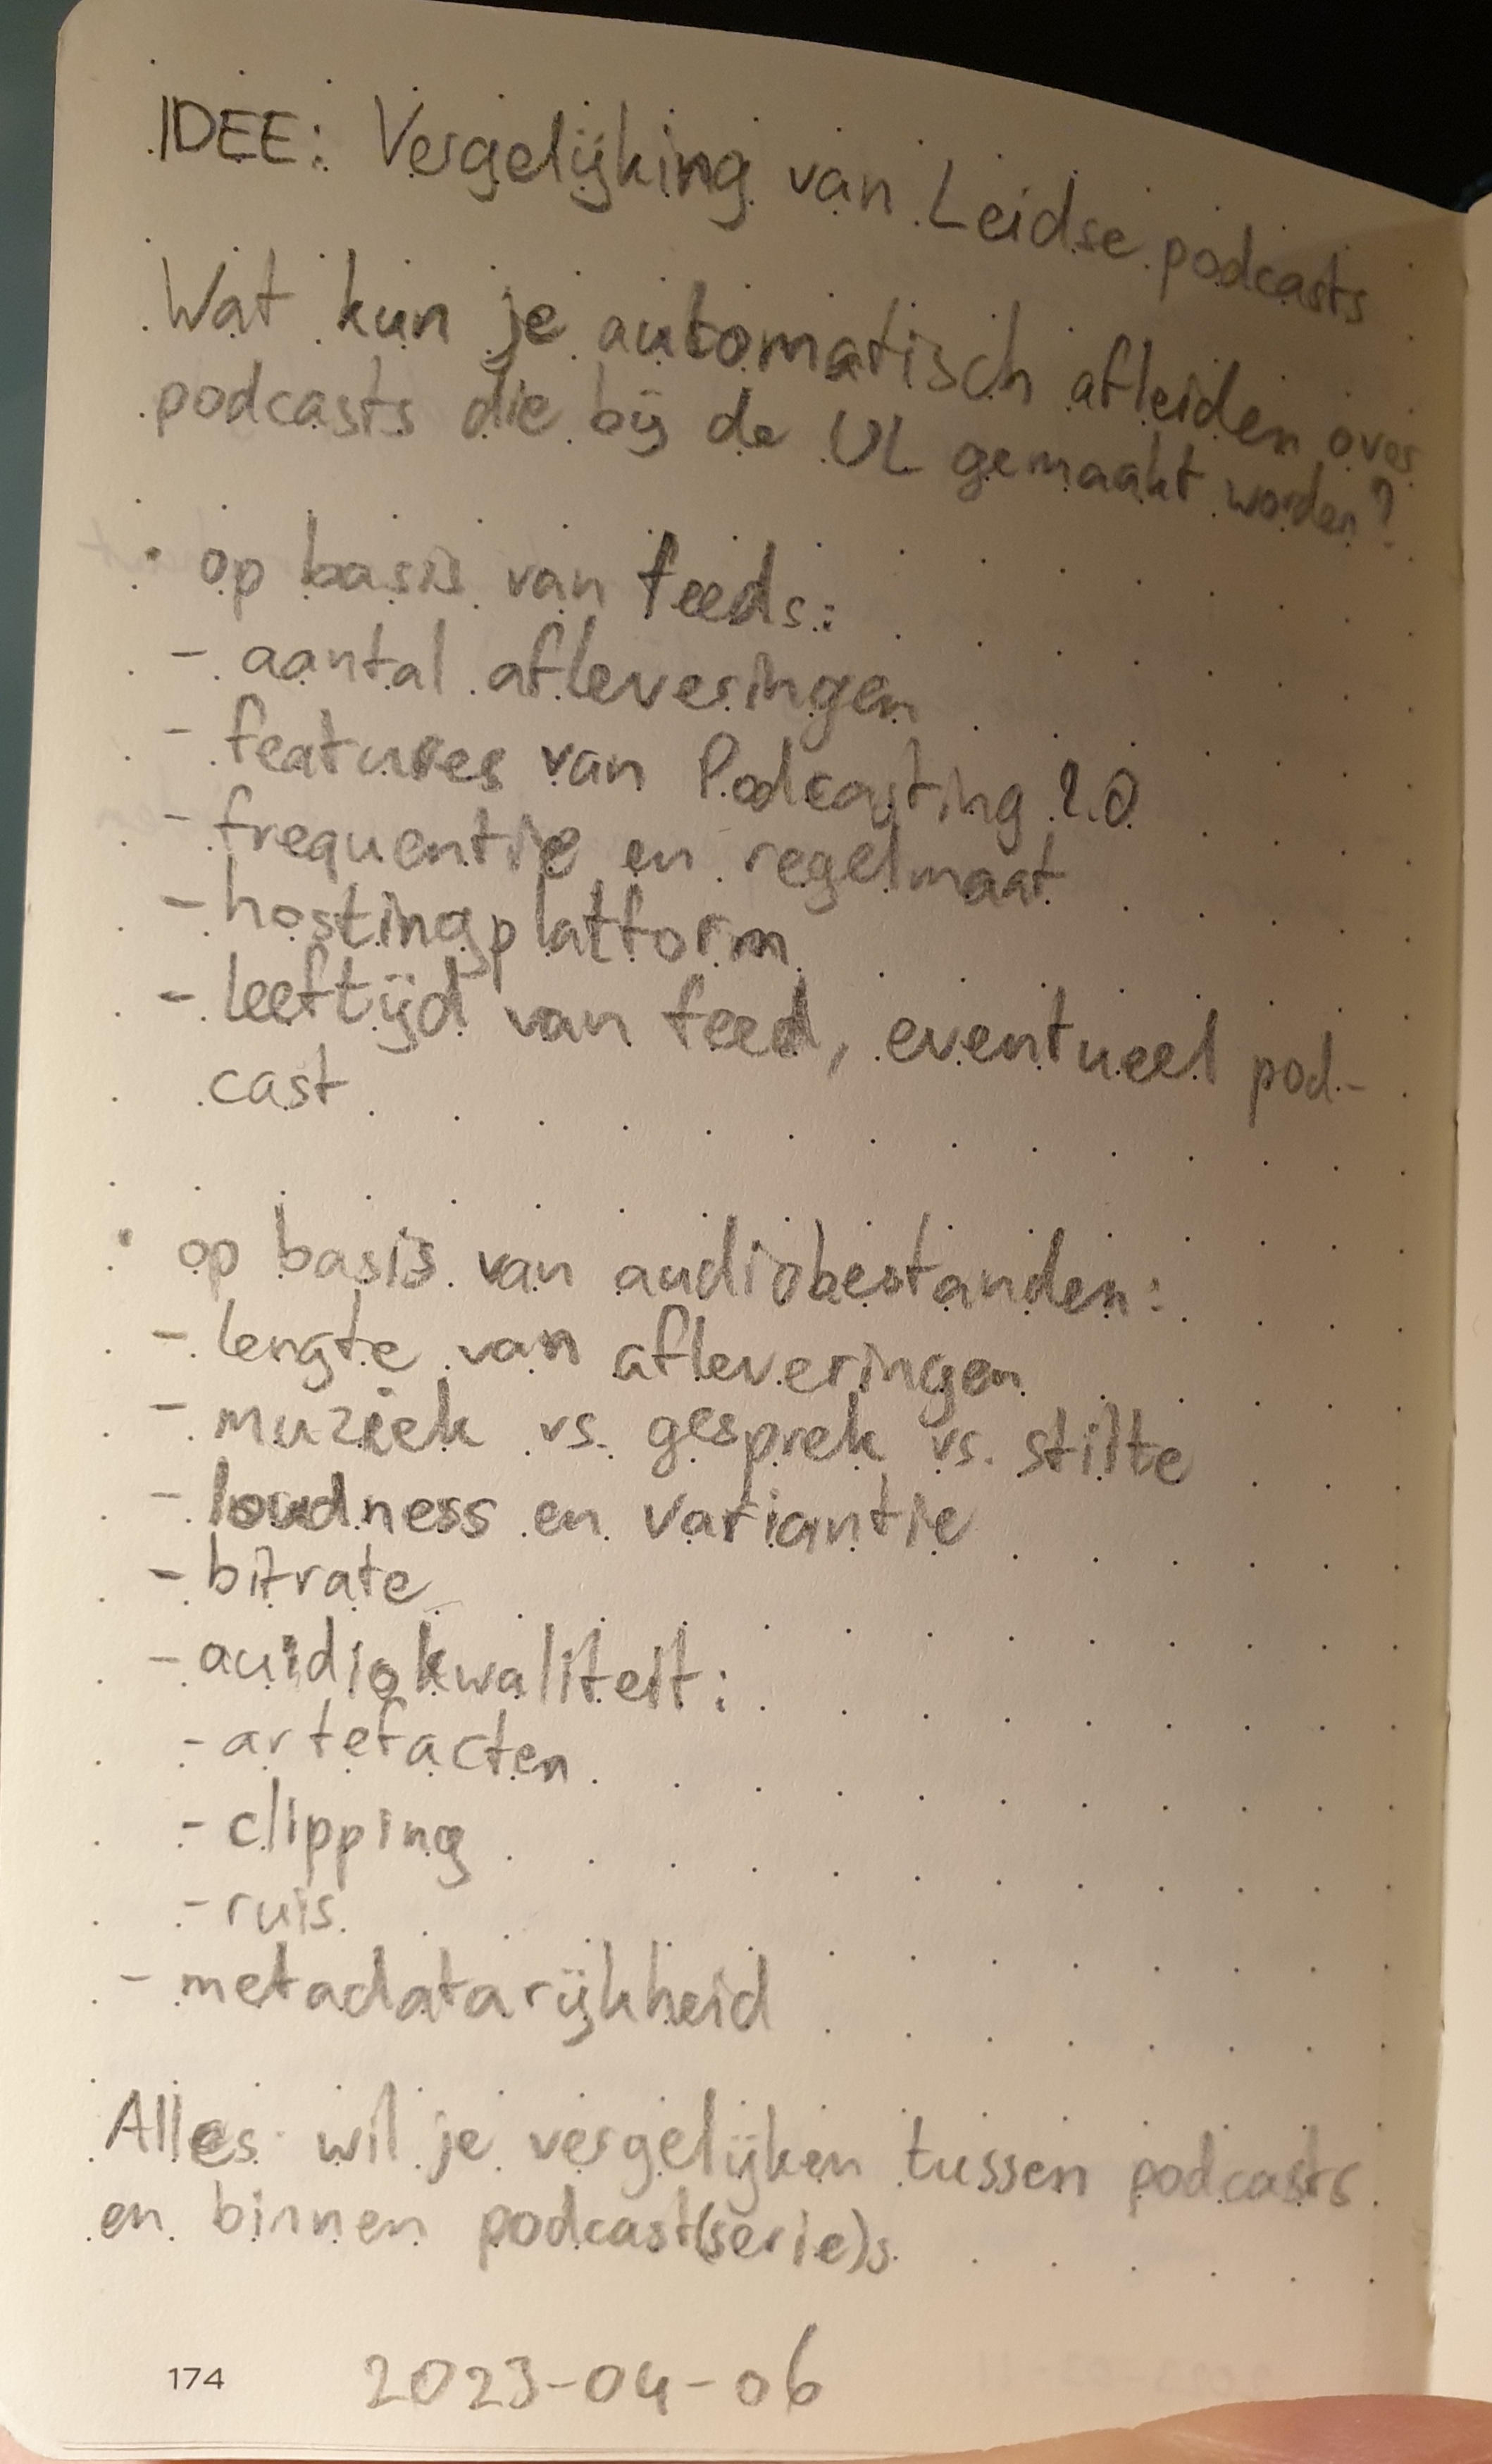 IDEE: Vergelijking van Leidse podcasts
Wat kun je automatisch afleiden over
podcasts die bij de UL gemaakt worden?
• op basis van feeds:
- aantal afleveringen
- features van Podcasting 2.0
- frequentie en regelmaat
- hostingplatform
- leeftijd van feed, eventueel pod-
cast
• op basis van audiobestanden:
- lengte van afleveringen
- muziek vs. gesprek vs. stilte
- loudness en variantie
- bitrate
- audiokwaliteit:
- artefacten
- clipping
- ruis
- metadatarijkheid
Alles wil je vergelijken tussen podcasts
en binnen podcast(serie)s
174 2023-04-06